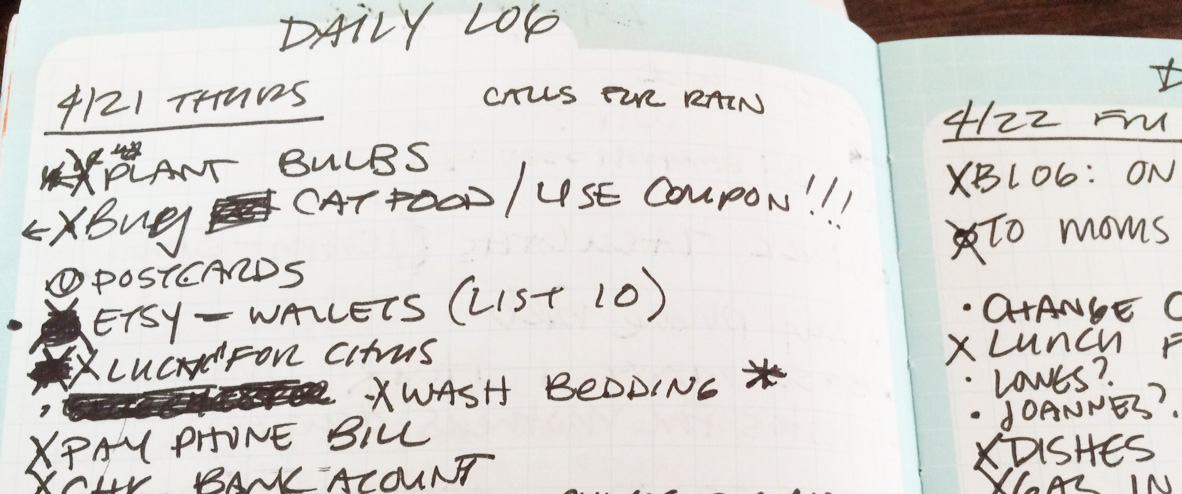 DAILY LOG
4/21 THURS
CALLS FOR RAIN
X PLANT BULBS
← X Buy CAT FOOD / USE COUPON!!!
POSTCARDS
• ETSY — WALLETS (LIST 10)
X FOR CITRUS
• X WASH BEDDING *
X PAY PHONE BILL
X CHK BANK ACOUNT
D
4/22 FRI
X BLOG: ON
TO MOMS
• CHANGE C
X LUNCH F
• LOWES?
• JOANNES?
X DISHES
X GAS IN